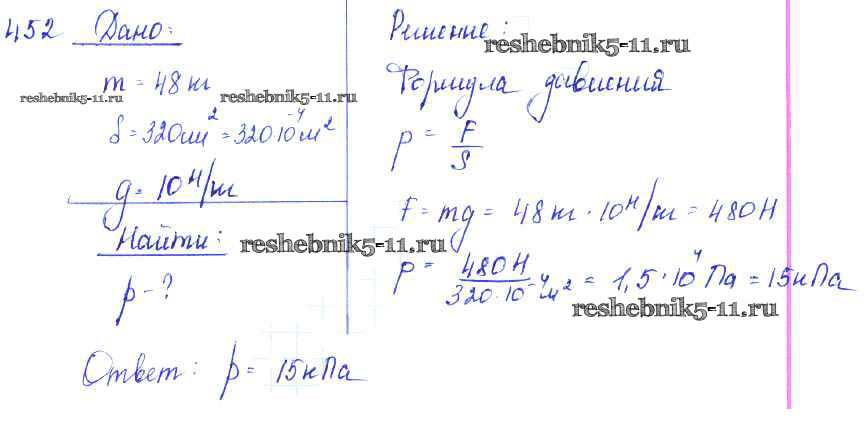 452 Дано:
m = 48 кг
S = 320 см² = 320·10⁻⁴ м²
g = 10 Н/кг
Найти:
p - ?
Решение:
Формула давления
p = F/S
F = mg = 48 кг · 10 Н/кг = 480 Н
p = 480 Н / 320·10⁻⁴ м² = 1,5·10⁴ Па = 15 кПа
Ответ: p = 15 кПа
reshebnik5-11.ru
reshebnik5-11.ru
reshebnik5-11.ru
reshebnik5-11.ru
reshebnik5-11.ru